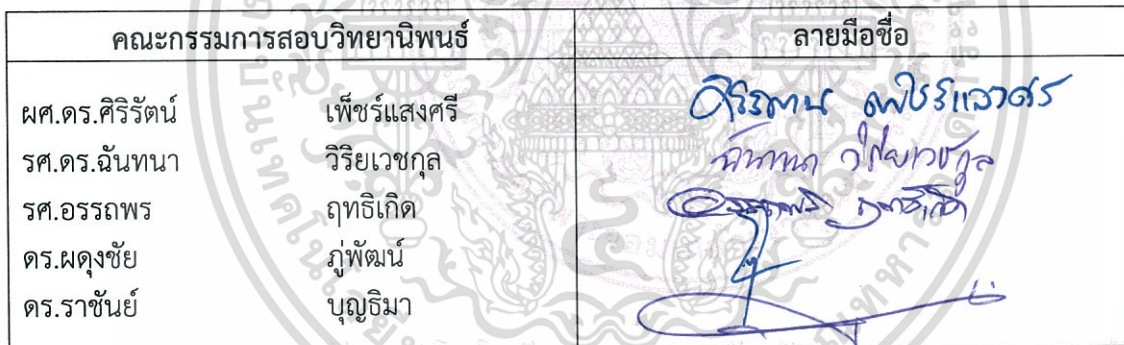 คณะกรรมการสอบวิทยานิพนธ์ ลายมือชื่อ
ผศ.ดร.ศิริรัตน์ เพ็ชร์แสงศรี
รศ.ดร.ฉันทนา วิริยเวชกุล ฉันทนา วิริยเวชกุล
รศ.อรรถพร ฤทธิเกิด อรรถพร ฤทธิเกิด
ดร.ผดุงชัย ภู่พัฒน์
ดร.ราชันย์ บุญธิมา